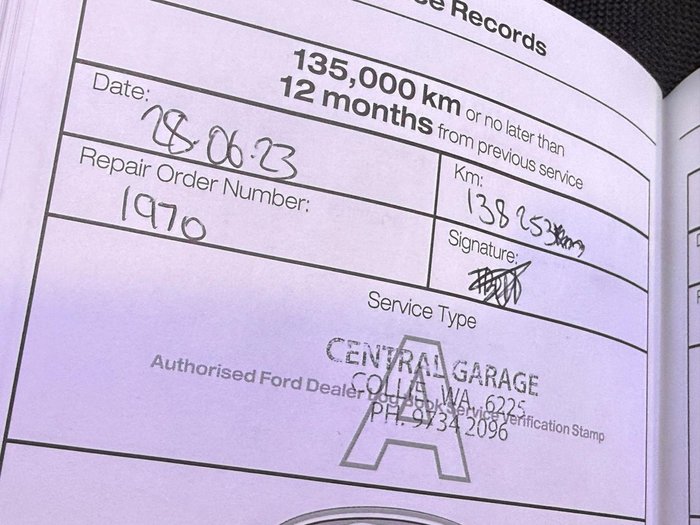 Records
135,000 km or no later than
12 months from previous service
Date:
28.06.23
Km:
138 253km
Repair Order Number:
1970
Signature:
Service Type
A
CENTRAL GARAGE
COLLIE, WA, 6225
PH: 9734 2096
Authorised Ford Dealer Log Book Service Verification Stamp